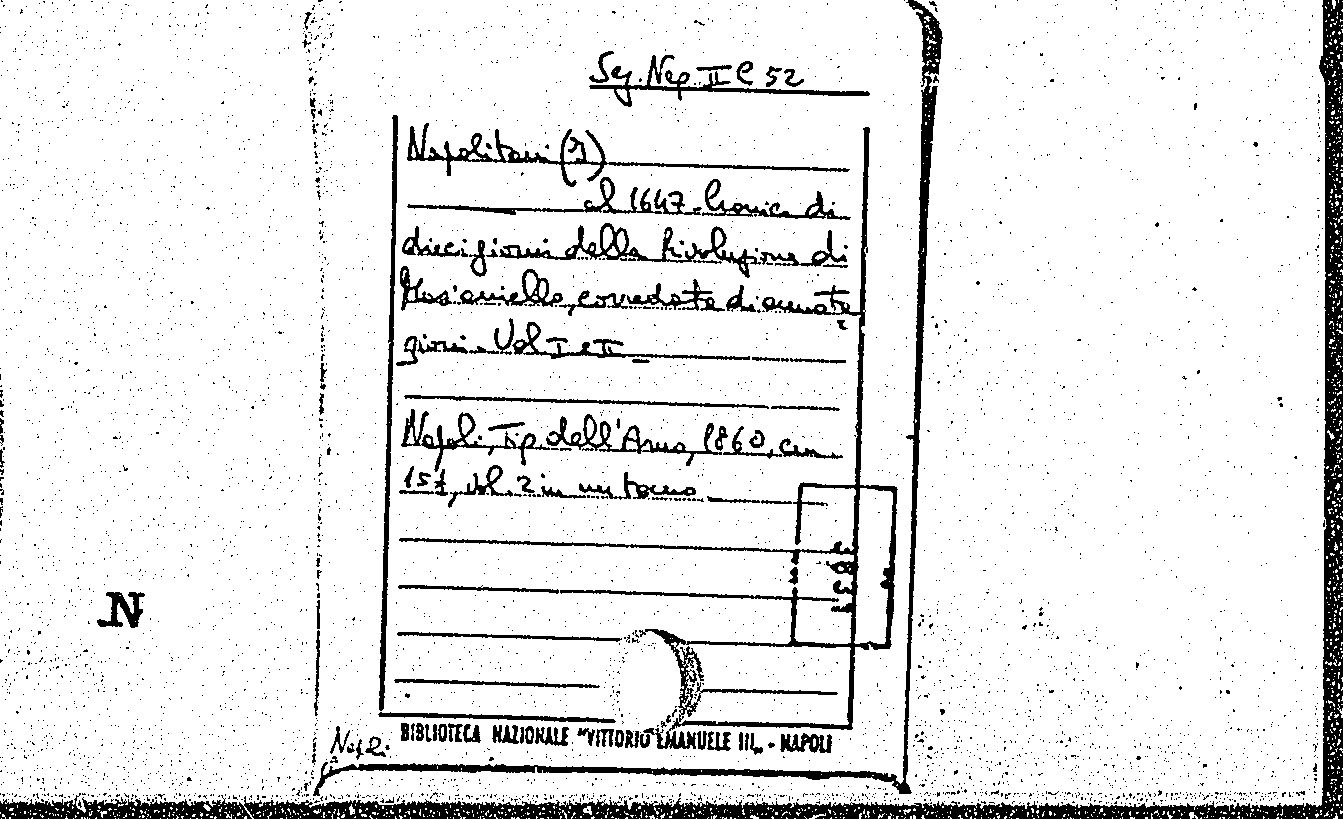 Sez. Nap II C 52
Napolitani (I)
al 1647. Cronica di
dieci giorni della Rivoluzione di
Mas'aniello, corredata di annota
zioni. Vol I e II
Napoli, Tip. dell'Arno, 1860, cm.
15½, vol. 2 in un tomo
N
BIBLIOTECA NAZIONALE "VITTORIO EMANUELE III" - NAPOLI
Nap 2.